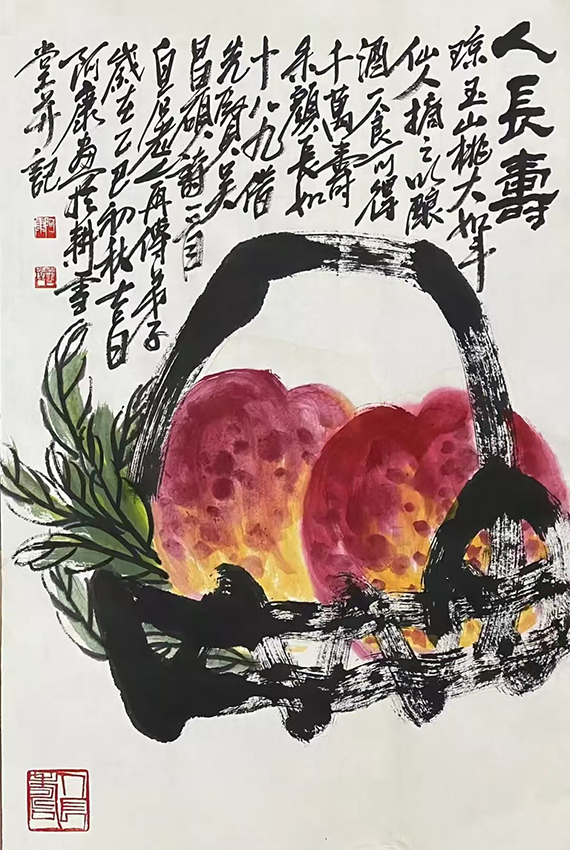 人長壽
琼玉山桃大如斗
仙人摘之以酿
酒一食可得
千萬壽
朱顏長如
十八九借
先賢吴
昌碩詩
白石老人再傳弟子
歲在乙巳初秋吉日
阿康畫於耕
堂并記
人長壽